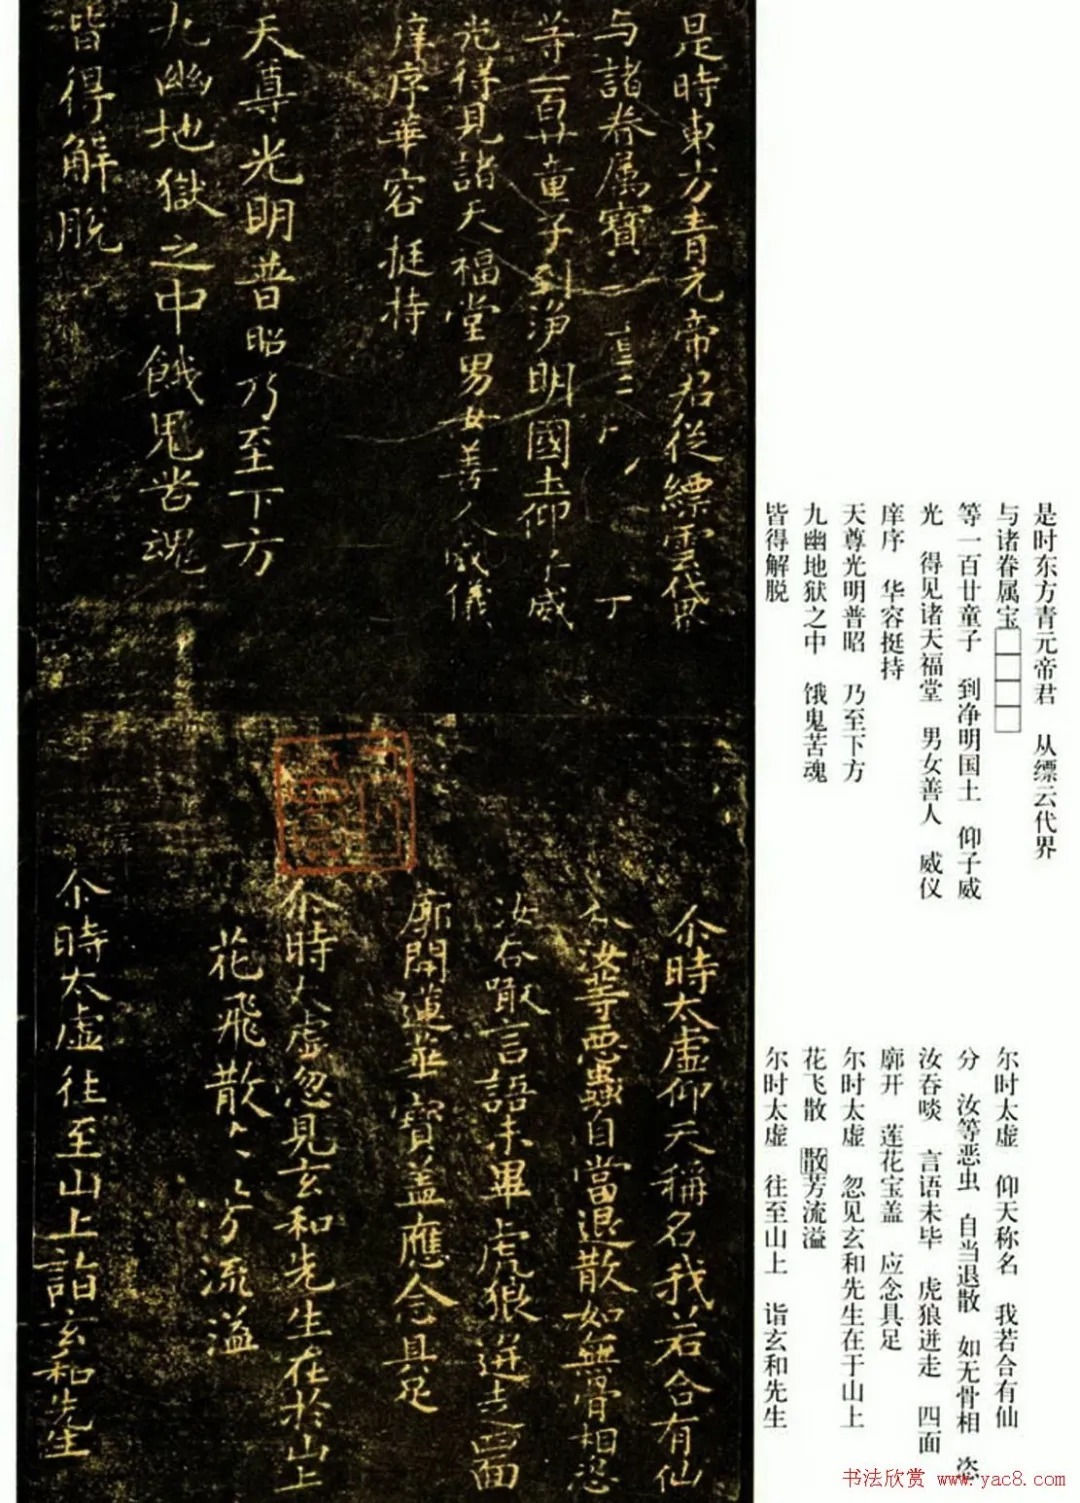 是時東方青元帝君從縹雲岱界
与諸眷属寶
等一百廿童子到淨明國土仰子威
光得見諸天福堂男女善人威儀
庠序華容挺持
天尊光明普昭乃至下方
九幽地獄之中餓鬼苦魂
皆得解脱
尒時太虛仰天稱名我若合有仙
分汝等惡蟲自當退散如無骨相恣
汝吞噉言語未畢虎狼迸走四面
廓開蓮花寶盖應念具足
尒時太虛忽見玄和先生在於山上
花飛散〻〻芳流溢
尒時太虛往至山上詣玄和先生
是时东方青元帝君 从缥云代界
与诸眷属宝□□□□
等一百廿童子 到净明国土 仰子威
光 得见诸天福堂 男女善人 威仪
庠序 华容挺持
天尊光明普昭 乃至下方
九幽地狱之中 饿鬼苦魂
皆得解脱
尔时太虚 仰天称名 我若合有仙
分 汝等恶虫 自当退散 如无骨相 恣
汝吞啖 言语未毕 虎狼迸走 四面
廓开 莲花宝盖 应念具足
尔时太虚 忽见玄和先生在于山上
花飞散 散芳流溢
尔时太虚 往至山上 诣玄和先生
书法欣赏 www.yac8.com